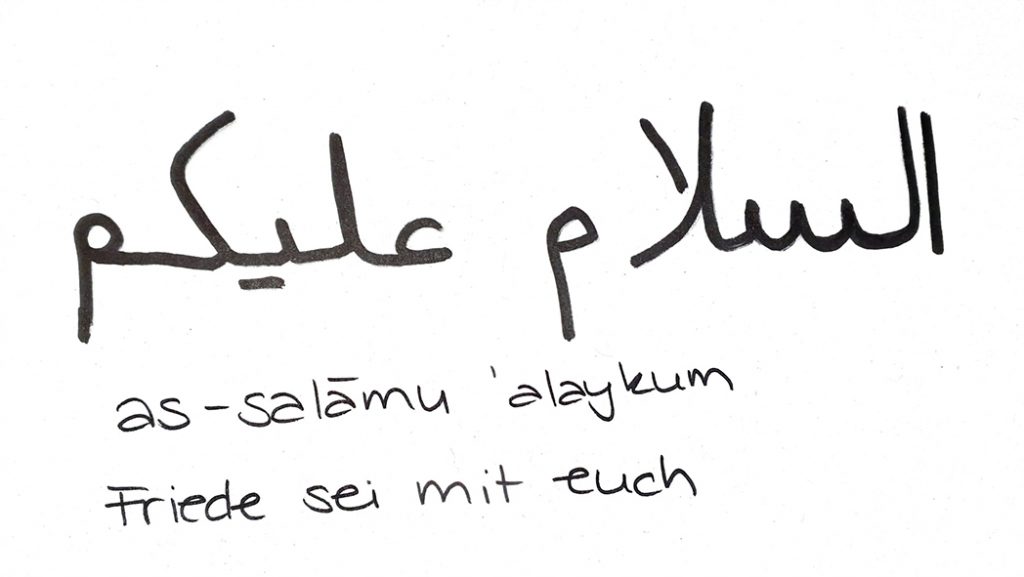 السلام عليكم
as-salāmu 'alaykum
Friede sei mit euch